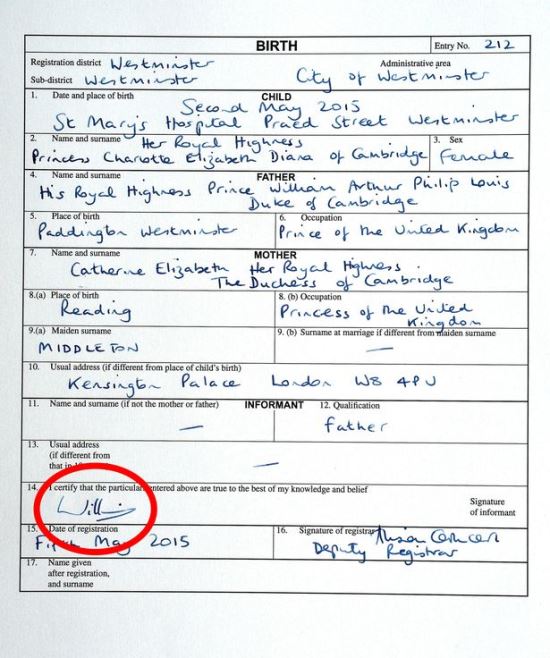 BIRTH
Entry No. 212
Registration district Westminster
Administrative area
Sub-district Westminster
City of Westminster
1. Date and place of birth
CHILD
Second May 2015
St Mary's Hospital Praed Street Westminster
2. Name and surname Her Royal Highness
3. Sex
Princess Charlotte Elizabeth Diana of Cambridge
Female
4. Name and surname
FATHER
His Royal Highness Prince William Arthur Philip Louis
Duke of Cambridge
5. Place of birth
6. Occupation
Paddington Westminster
Prince of the United Kingdom
7. Name and surname
MOTHER
Catherine Elizabeth Her Royal Highness
The Duchess of Cambridge
8.(a) Place of birth
8. (b) Occupation
Reading
Princess of the United
Kingdom
9.(a) Maiden surname
9. (b) Surname at marriage if different from maiden surname
MIDDLETON
—
10. Usual address (if different from place of child's birth)
Kensington Palace London W8 4PU
11. Name and surname (if not the mother or father)
INFORMANT
12. Qualification
—
Father
13. Usual address
(if different from
that in
—
14. I certify that the particulars entered above are true to the best of my knowledge and belief
Signature
of informant
15. Date of registration
16. Signature of registrar
Fifth May 2015
Deputy Registrar
17. Name given
after registration,
and surname